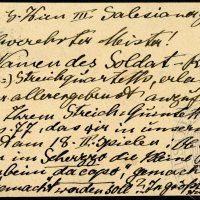 Wien III Salesianerg
Hochverehrter Meister!
Namen des Soldat-
Streichquartetts, erla
allerergebenst anzuf
Ihrem Streich-Quintett
77, das wir in unser
am 18. II. spielen
im Scherzo die kleine
beim da capo gemach
gemacht werden soll? In größt